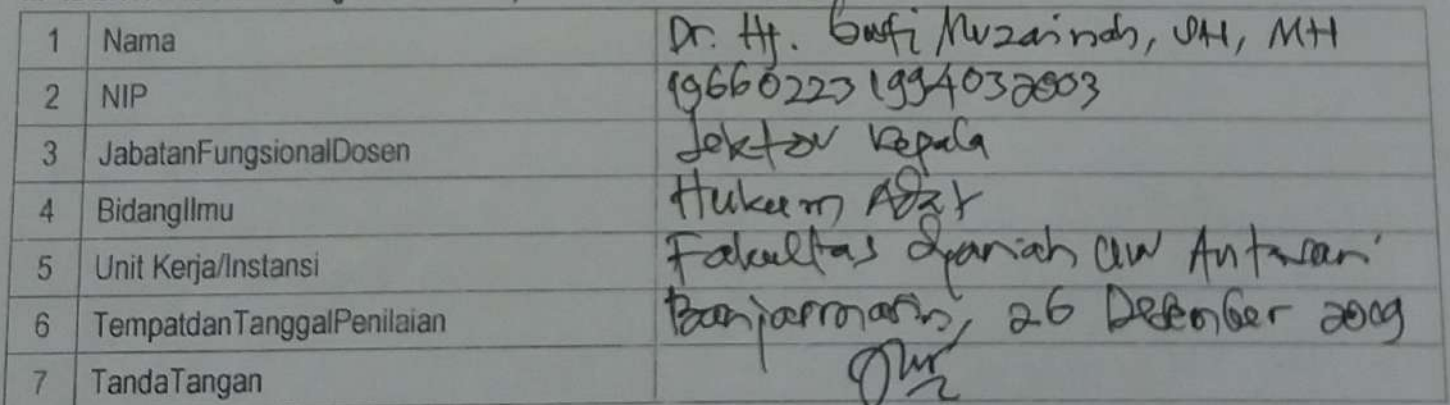 1 Nama Dr. Hj. Gusti Muzainah, SH, MH
2 NIP 196602231994032003
3 JabatanFungsionalDosen Lektor Kepala
4 BidangIlmu Hukum Adat
5 Unit Kerja/Instansi Fakultas Syariah UIN Antasari
6 TempatdanTanggalPenilaian Banjarmasin, 26 Desember 2009
7 TandaTangan